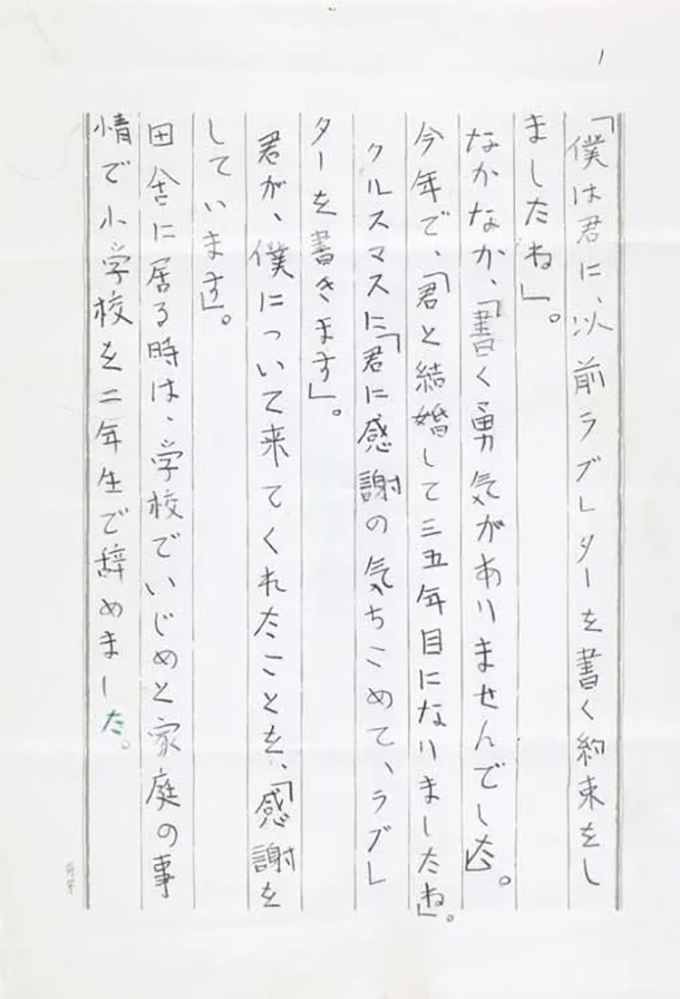 1
「僕は君に、以前ラブレターを書く約束をし
ましたね」。
なかなか、「書く勇気がありませんでした」。
今年で、「君と結婚して三五年目になりましたね」。
クルスマスに「君に感謝の気ちこめて、ラブレ
ターを書きます」。
君が、僕について来てくれたことを、「感謝を
しています」。
田舎に居る時は、学校でいじめと家庭の事
情で小学校を二年生で辞めました。